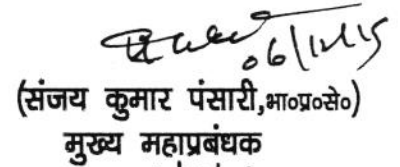 06/12/15
(संजय कुमार पंसारी,भा०प्र०से०)
मुख्य महाप्रबंधक